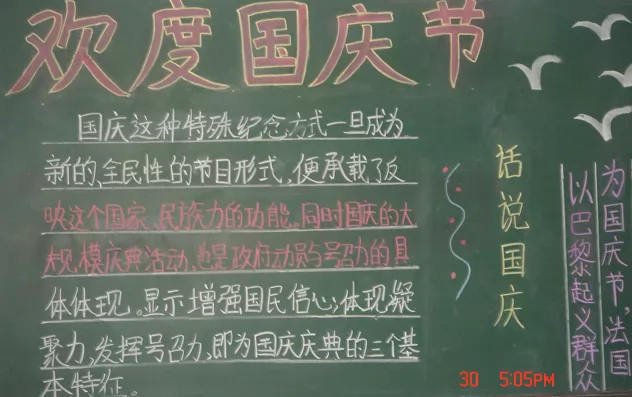 欢度国庆节
国庆这种特殊纪念方式一旦成为
新的、全民性的节目形式，便承载了反
映这个国家、民族力的功能。同时国庆的大
规模庆典活动，也是政府动员与号召力的具
体体现。显示增强国民信心，体现凝
聚力，发挥号召力，即为国庆庆典的三个基
本特征。
话说国庆
为国庆节，法国
以巴黎起义群众
30 5:05PM